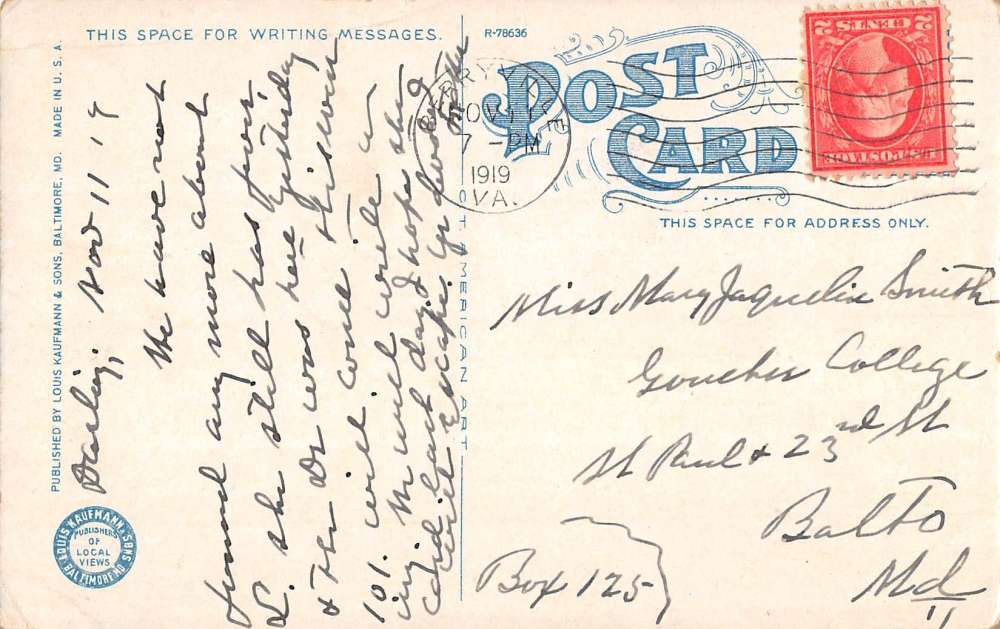 THIS SPACE FOR WRITING MESSAGES.
R-78636
POST CARD
THIS SPACE FOR ADDRESS ONLY.
PUBLISHED BY LOUIS KAUFMANN & SONS, BALTIMORE, MD. MADE IN U.S.A.
LOUIS KAUFMANN & SONS
BALTIMORE MD.
PUBLISHERS
OF
LOCAL
VIEWS
AMERICAN ART
NOV 11
7 - PM
1919
VA.
U.S. POSTAGE
2 CENTS 2
Darling; Nov 11 19
We have not
any more about
S. she still has fever,
Her Dr was here yesterday
& will come
101. will write in
will and day & hope the
Miss Mary Jaquelin Smith
Goucher College
St Paul & 23rd St
Balto
Md
Box 125